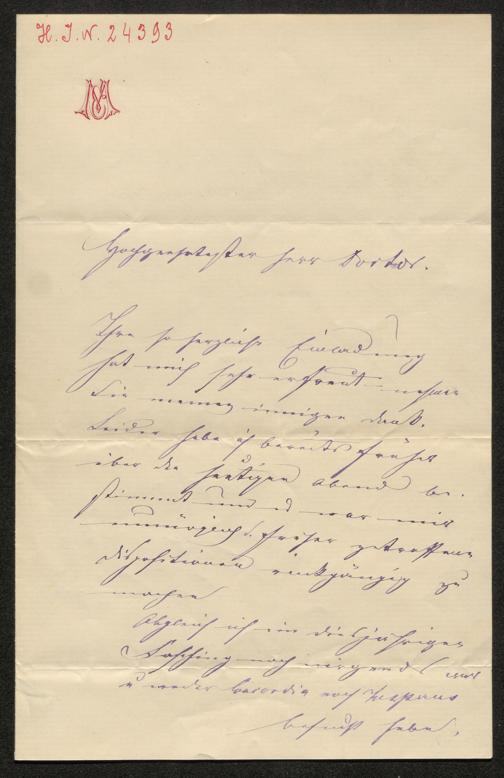 H. I. N. 24393
Hochgeehrtester Herr Doctor.
Ihre so herzliche Einladung
hat mich sehr erfreut nehmen
Sie meinen innigen Dank.
Leider habe ich bereits früher
über den heutigen Abend be-
stimmt und es war mir
unmöglich früher getroffene
Dispositionen rückgängig zu
machen
Obgleich ich im diesjährigen
Fasching noch nirgends war
u weder noch
besucht habe,